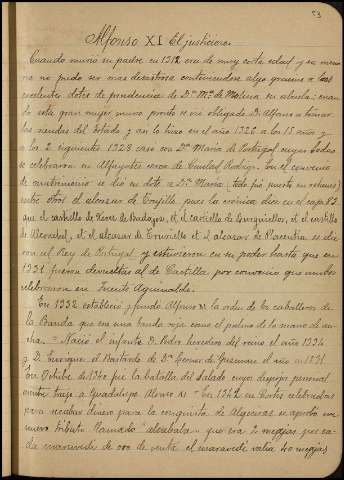 53
Alfonso XI El justiciero
Cuando murio su padre en 1312 era de muy corta edad y su
no pudo ser mas desastrosa conteniendose algo gracias a las
excelentes dotes de prudencia de Dª Mª de Molina su abuela; cuan
do esta gran mujer muno pronto se vio obligado D. Alfonso a tomar
las riendas del Estado y asi lo hizo en el año 1325 a los 15 años y
a los 2 siguientes 1328 caso con Dª Maria de Portugal cuyas bodas
se celebraron en Alfayates cerca de Ciudad Rodrigo. En el convenio
de matrimonio se dio en dote a Dª Maria
entre otros el alcazar de Trujillo pues la cronica dice en el cap.
que el castillo de Xerez de Badajoz, et el castillo de Burguillos, et el castillo
de Alconchel, et el alcazar de Truxiello et el alcazar de Plasentia se dio
con el Rey de Portugal y estuvieron en su poder hasta que en
1331 fueron devueltos al de Castilla por convenio que ambos
celebraron en Fuente Aguinaldo.
En 1332 establecio y fundo Alfonso XI la orden de los caballeros de
la Banda que era una banda roja como el palmo de la mano de an
cha = Nacio el infante D. Pedro heredero del reino el año 1334
y D. Enrique el Bastardo de Dª Leonor de Guzman el año
En Octubre de 1340 fue la batalla del Salado cuyos despojos personal
mente trajo a Guadalupe Alfonso XI = En 1342 en Cortes celebradas
para recabar dinero para la conquista de Algeciras se aprobo un
nuevo tributo llamado alcabala que era 2 meajas por ca
da maravedi de oro de venta el maravedi valia 40 meajas